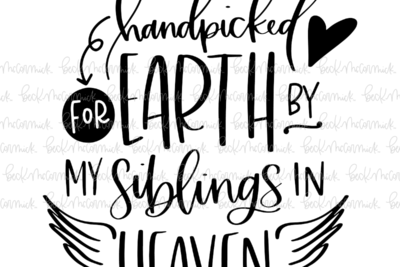 handpicked
FOR EARTH BY
MY Siblings IN
HEAVEN